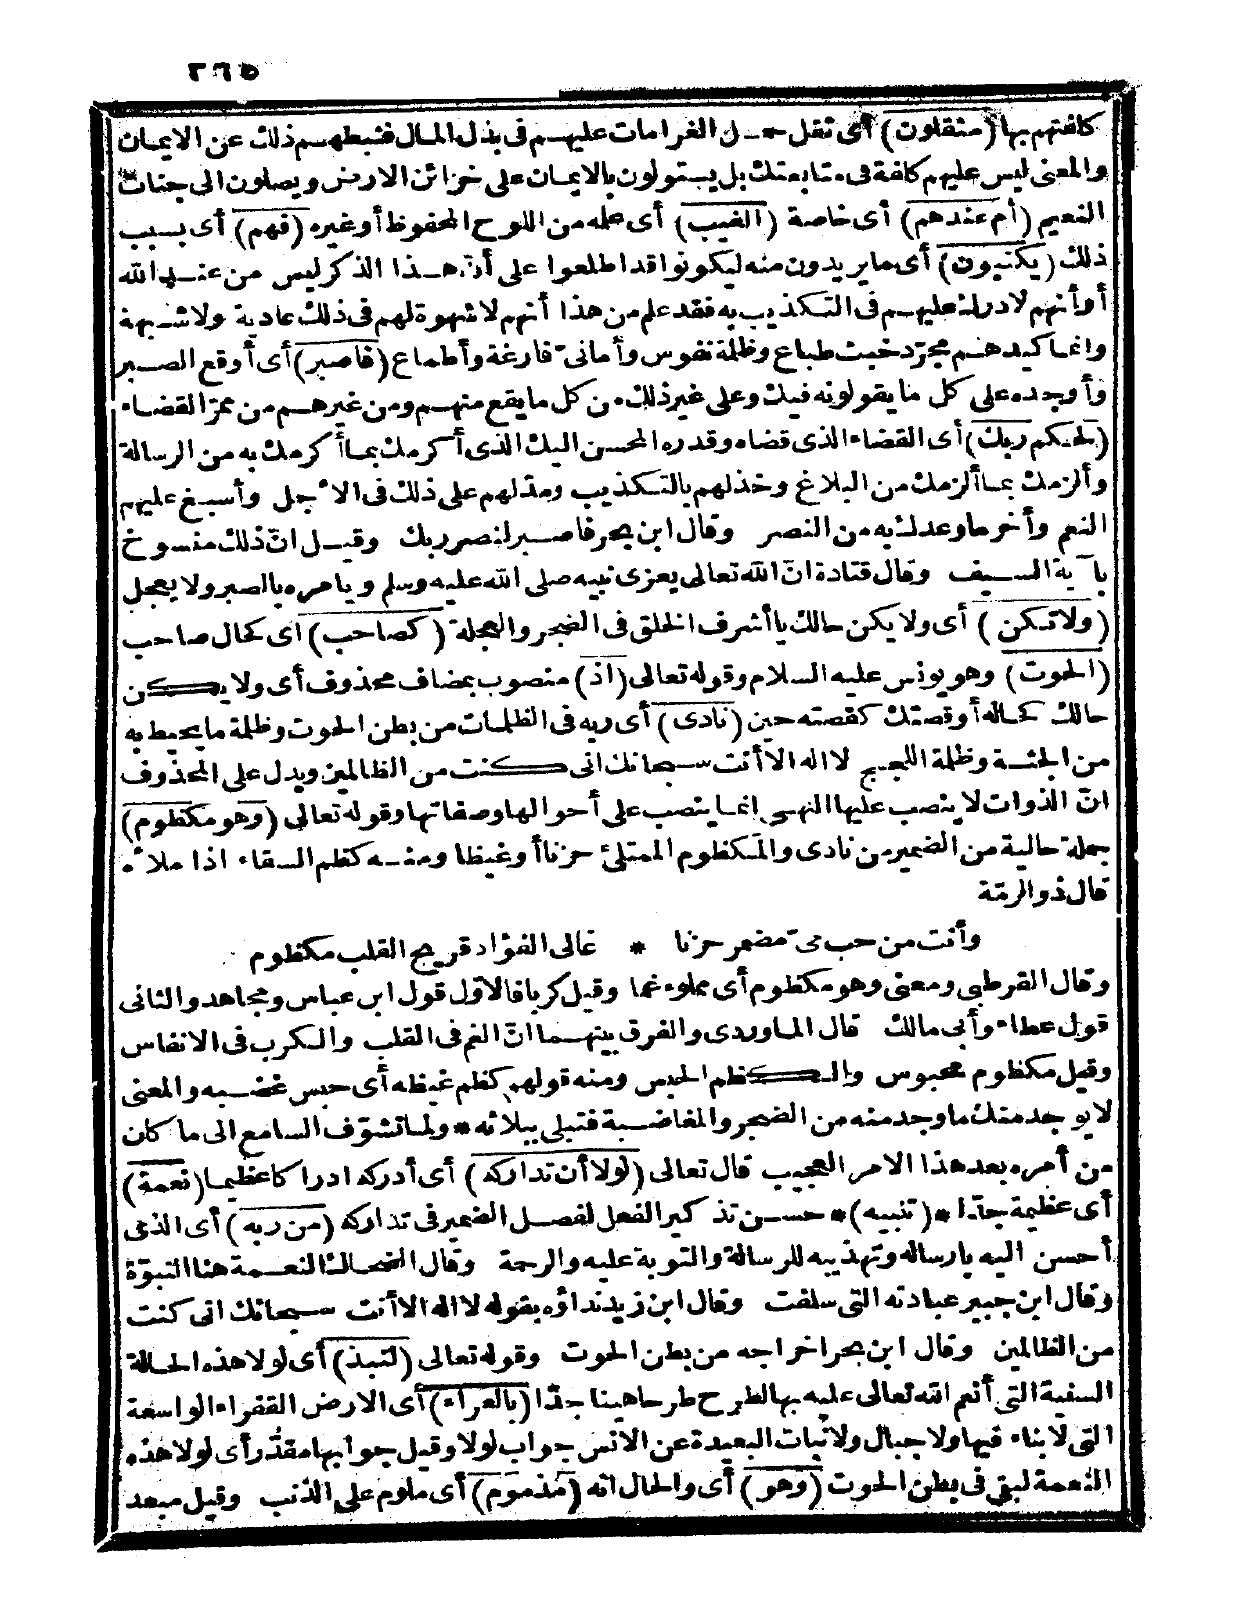 ٣٦٥
كلفتهم بها (مثقلون) أى ثقل حمل الغرامات عليهم فى بذل المال فثبطهم ذلك عن الايمان
والمعنى ليس عليهم كلفة فى متابعتك بل يستولون بالايمان على خزائن الارض ويصلون الى جنات
النعيم (أم عندهم) أى خاصة (الغيب) أى علمه من اللوح المحفوظ أو غيره (فهم) أى بسبب
ذلك (يكتبون) أى ما يريدون منه ليكونوا قد اطلعوا على أنّ هذا الذكر ليس من عند الله
أو أنهم لا درك عليهم فى التكذيب به فقد علم من هذا أنهم لا شهوة لهم فى ذلك عادية ولا شبهة
وانما كيدهم مجرّد خبث طباع وظلمة نفوس وأمانىّ فارغة وأطماع (فاصبر) أى أوقع الصبر
وأوجده على كل ما يقولونه فيك وعلى غير ذلك من كل ما يقع منهم ومن غيرهم من ممرّ القضاء
(لحكم ربك) أى القضاء الذى قضاه وقدره المحسن اليك الذى أكرمك بما أكرمك به من الرسالة
وألزمك بما ألزمك من البلاغ وخذلهم بالتكذيب ومدّلهم على ذلك فى الاجل وأسبغ عليهم
النعم وأخر ما وعدك به من النصر وقال ابن بحر فاصبر لنصر ربك وقيل انّ ذلك منسوخ
بآية السيف وقال قتادة انّ الله تعالى يعزى نبيه صلى الله عليه وسلم ويامره بالصبر ولا يعجل
(ولا تكن) أى ولا يكن حالك يا أشرف الخلق فى الضجر والعجلة (كصاحب) أى كحال صاحب
(الحوت) وهو يونس عليه السلام وقوله تعالى (اذ) منصوب بمضاف محذوف أى ولا يكن
حالك كحاله أو قصتك كقصته حين (نادى) أى ربه فى الظلمات من بطن الحوت وظلمة ما يحيط به
من الجثة وظلمة اللجج لا اله الا أنت سبحانك انى كنت من الظالمين ويدل على المحذوف
انّ الذوات لا ينصب عليها النهى انما ينصب على أحوالها وصفاتها وقوله تعالى (وهو مكظوم)
جملة حالية من الضمير من نادى والمكظوم الممتلئ حزنا أو غيظا ومنه كظم السقاء اذا ملأه
قال ذو الرمّة
وأنت من حب مىّ مضمر حزنا * عانى الفؤاد قريح القلب مكظوم
وقال القرطبى ومعنى وهو مكظوم أى مملوء غما وقيل كربا فالاوّل قول ابن عباس ومجاهد والثانى
قول عطاء وأبى مالك قال الماوردى والفرق بينهما انّ الغم فى القلب والكرب فى الانفاس
وقيل مكظوم محبوس والكظم الحبس ومنه قولهم كظم غيظه أى حبس غضبه والمعنى
لا يوجد منك ما وجد منه من الضجر والمغاضبة فتبلى ببلائه * ولما تشوّف السامع الى ما كان
من أمره بعد هذا الامر العجيب قال تعالى (لولا أن تداركه) أى أدركه ادراكا عظيما (نعمة)
أى عظيمة جدّا * (تنبيه) * حسن تذكير الفعل لفصل الضمير فى تداركه (من ربه) أى الذى
أحسن اليه بارساله وتهذيبه للرسالة والتوبة عليه والرحمة وقال الضحاك النعمة هنا النبوّة
وقال ابن جبير عبادته التى سلفت وقال ابن زيد نداؤه بقوله لا اله الا أنت سبحانك انى كنت
من الظالمين وقال ابن بحر اخراجه من بطن الحوت وقوله تعالى (لنبذ) أى لولا هذه الحالة
السنية التى أنعم الله تعالى عليه بها لطرح طرحا هينا جدّا (بالعراء) أى الارض القفراء الواسعة
التى لا بناء فيها ولا جبال ولا نبات البعيدة عن الانس جواب لولا وقيل جوابها مقدّر أى لولا هذه
النعمة لبقى فى بطن الحوت (وهو) أى والحال انه (مذموم) أى ملوم على الذنب وقيل مبعد